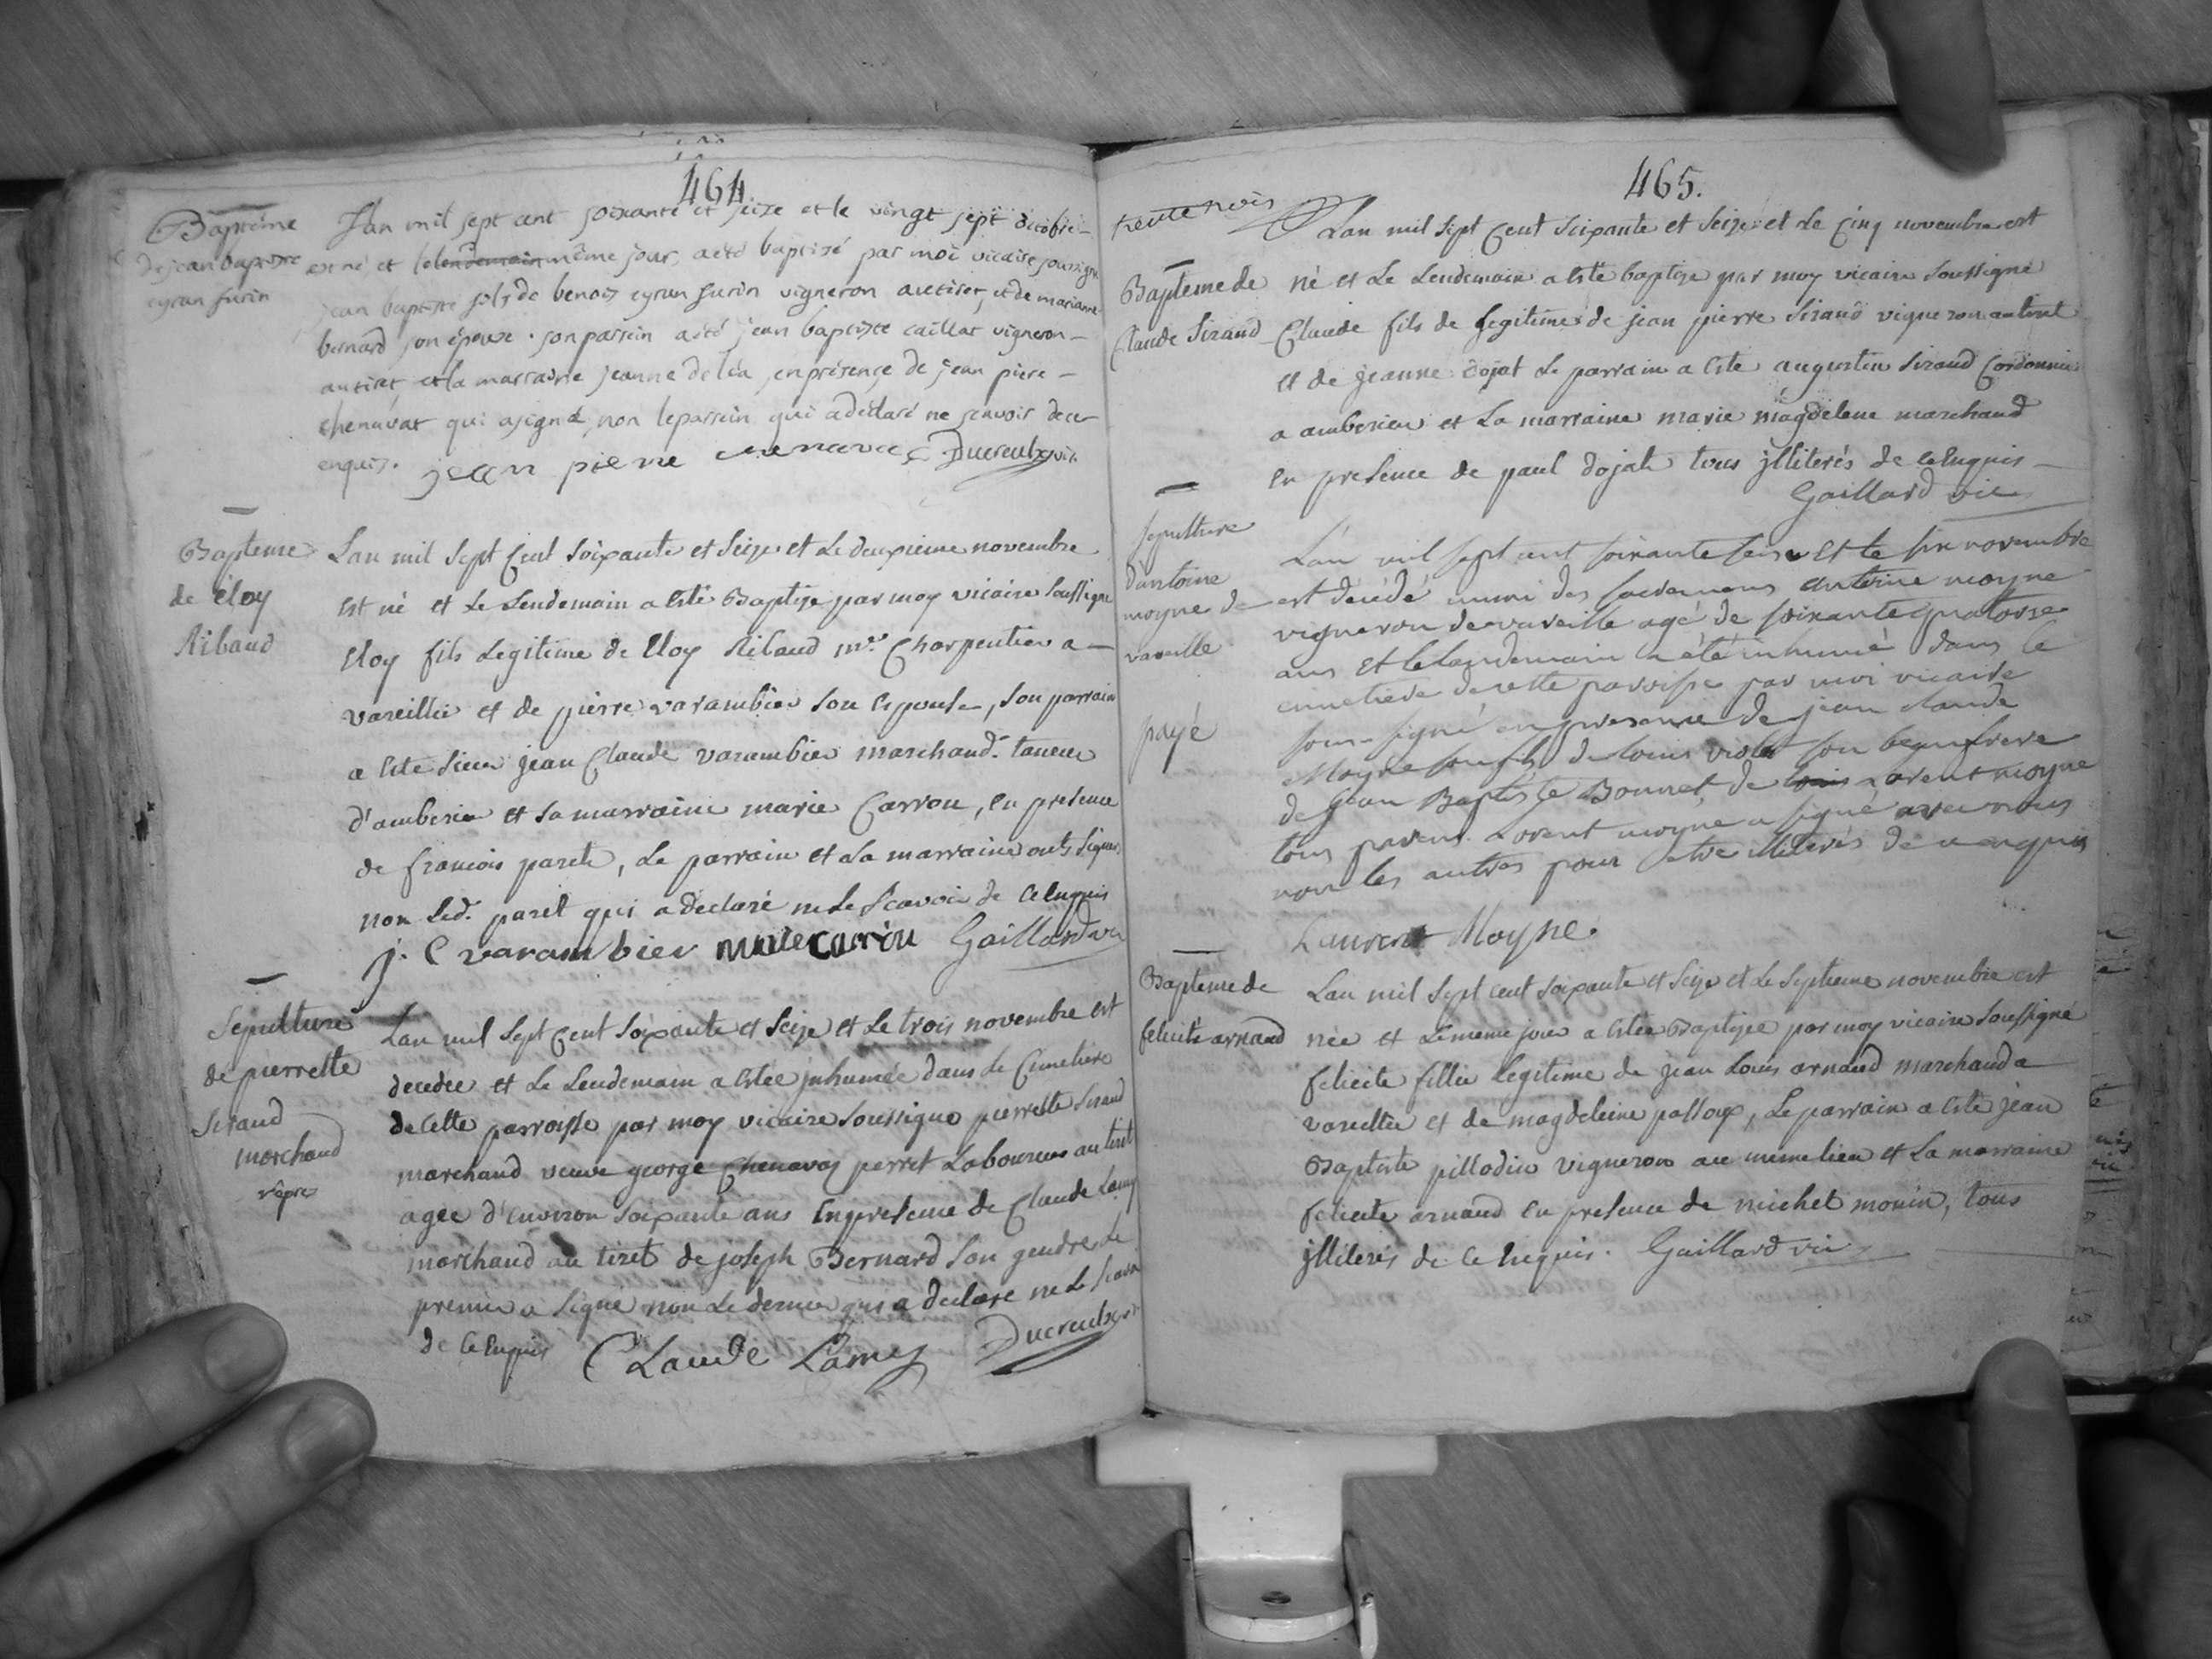 464
Baptême
de jean baptiste
eyran furin
L'an mil sept cent soixante et seize et le vingt sept octobre
est né et le lendemain même jour a été baptisé par moi vicaire soussigné
jean baptiste fils de benois eyran furin vigneron au tiret, et de marianne
bernard son épouse. son parrein a été jean baptiste caillat vigneron
au tiret et la marraine jeanne deléa, en présence de jean piere
chenavat qui a signé, non le parrein qui a déclaré ne scavoir de ce
enquis. jean pierre chenavat Ducreulx vic.
Bapteme
de éloy
Ribaud
Lan mil sept Cent soixante et seize et le deuxieme novembre
est né et le lendemain a esté Baptize par moy vicaire soussigne
Eloy fils legitime de Eloy Ribaud me. Charpentier a
vareillie et de pierre varambier son espouse, son parrain
a esté sieur jean Claude varambier marchand taneur
d'amberieu et sa marraine marie Carrou, en presence
de francois paret, Le parrain et la marraine onts signes
non led. paret qui a declaré ne le scavoir de ce enquis
j. C varambier marie carrou Gaillard vic
Sepulture
de pierrette
Siraud
marchand
vêpres
Lan mil sept Cent soixante et seize et le trois novembre est
decedee et le lendemain a estee inhumée dans le Cimetiere
de cette parroisse par moy vicaire soussigne pierrette siraud
marchand veuve george Chenavas perret Laboureur au tiret
agee d'environ soixante ans en presence de Claude Lamy
marchand au tiret de joseph Bernard son gendre le
premier a signe non le dernier qui a declare ne le scavoir
de ce enquis Claude Lamy Ducreulx vic
465.
trente trois
Baptême de
Claude Siraud
Lan mil sept Cent soixante et seize et le Cinq novembre est
né et le lendemain a esté baptize par moy vicaire soussigné
Claude fils de legitime de jean pierre Siraud vigneron au tiret
et de jeanne dojat le parrain a este augustin Siraud Cordonnier
a amberieu et la marraine marie magdelene marchand
en presence de paul dojat tous jlliterés de ce enquis
Gaillard vic
sepulture
d'antoine
moyne de
vareille
payé
L'an mil sept cent soixante seize et le six novembre
est décédé muni des sacremens antoine moyne
vigneron de vareille agé de soixante quatorse
ans et le landemain a été inhumé dans le
cimetiere de cette paroisse par moi vicaire
sous-signé en presence de jean claude
Moyne son fils de louis violet son beaufrere
de jean Baptiste Bonnet de louis Lorent moyne
tous parens Lorent moyne a signé avec nous
non les autres pour etre illiterés de ce enquis
Laurent Moyne.
Bapteme de
felicité arnaud
Lan mil sept cent soixante et seize et le septieme novembre est
née et le meme jour a estée Baptizee par moy vicaire soussigné
felicite fille legitime de jean Louis arnaud marchand a
vareillie et de magdeleine passoux, Le parrain a esté jean
Baptiste pillodin vigneron au meme lieu et la marraine
felicite arnaud en presence de michel monin, tous
jlliterés de ce enquis. Gaillard vic